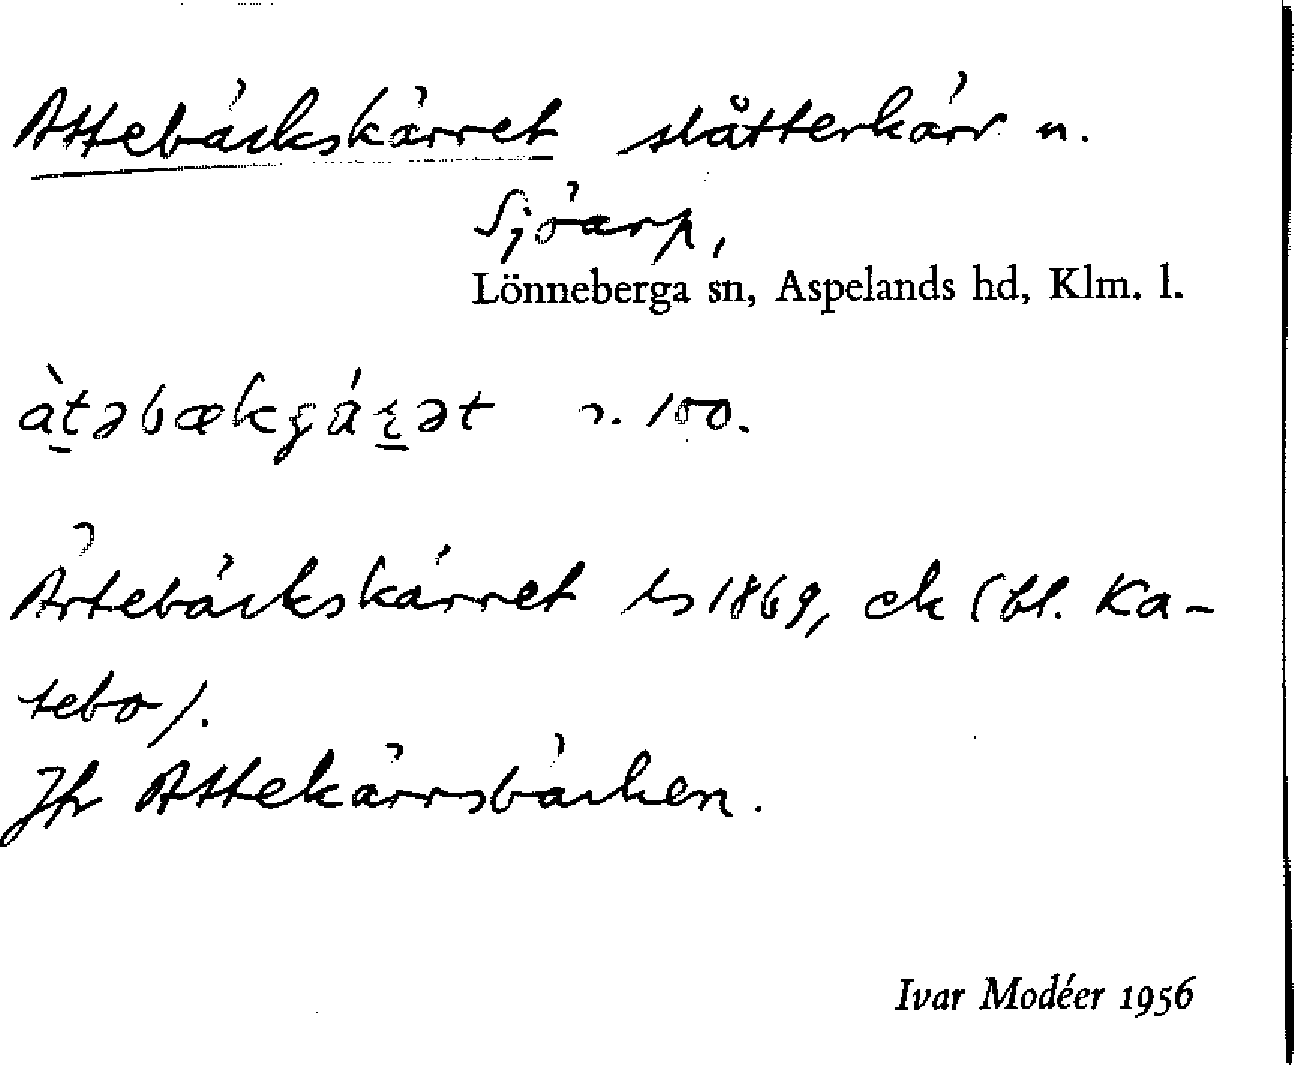 Attebäckskärret slåtterkärr u.
Sjöarp,
Lönneberga sn, Aspelands hd, Klm. l.
àt̠əbækʂáɽ̠ət n. 100.
Ärtebäckskärret ls 1869, ek (bl. Ka-
tebo).
Jfr Attekärrsbäcken.
Ivar Modéer 1956